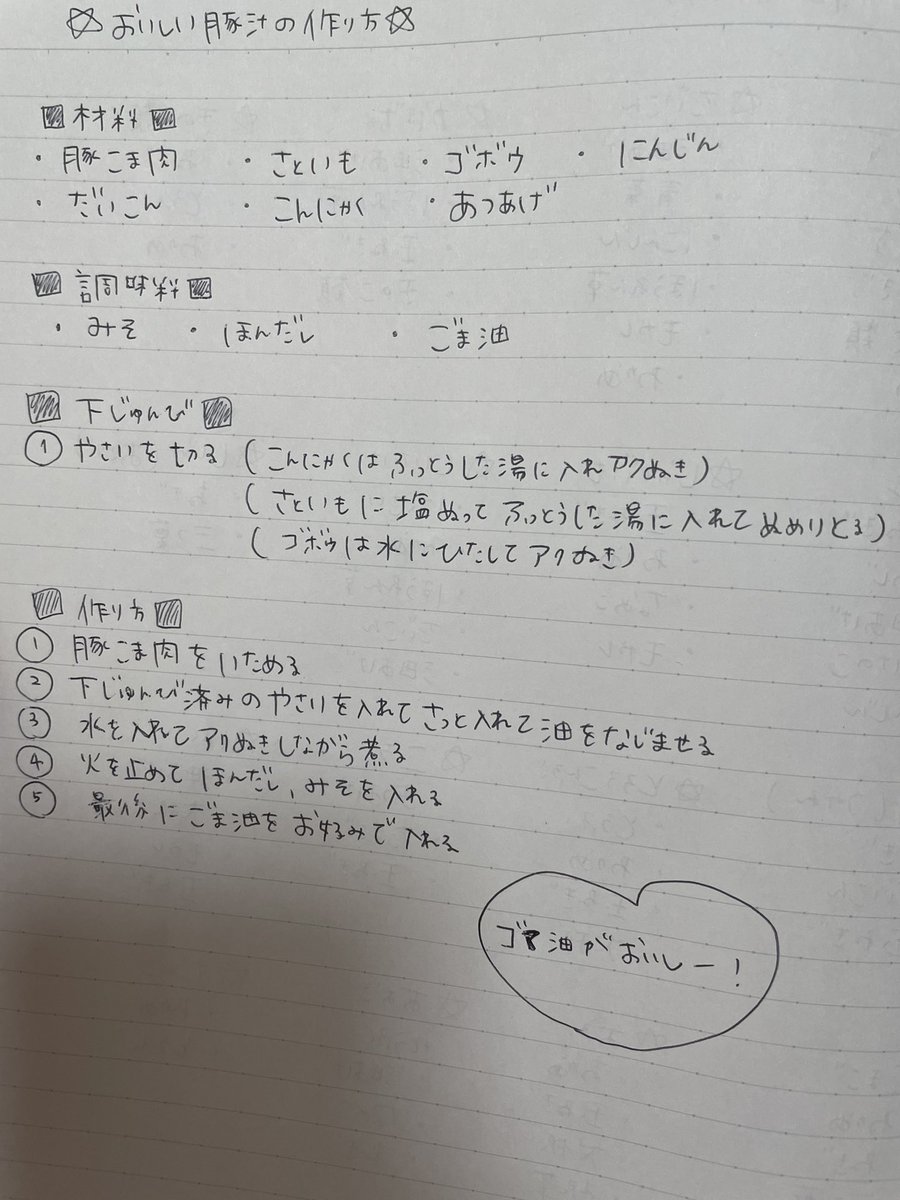 ☆ おいしい豚汁の作り方 ☆
材料
・豚こま肉 ・さといも ・ゴボウ ・にんじん
・だいこん ・こんにゃく ・あつあげ
調味料
・みそ ・ほんだし ・ごま油
下じゅんび
① やさいを切る (こんにゃくはふっとうした湯に入れアクぬき)
(さといもに塩ぬってふっとうした湯に入れてぬめりとる)
(ゴボウは水にひたしてアクぬき)
作り方
① 豚こま肉をいためる
② 下じゅんび済みのやさいを入れてさっと入れて油をなじませる
③ 水を入れてアクぬきしながら煮る
④ 火を止めてほんだし、みそを入れる
⑤ 最後にごま油をお好みで入れる
ゴマ油がおいしー!